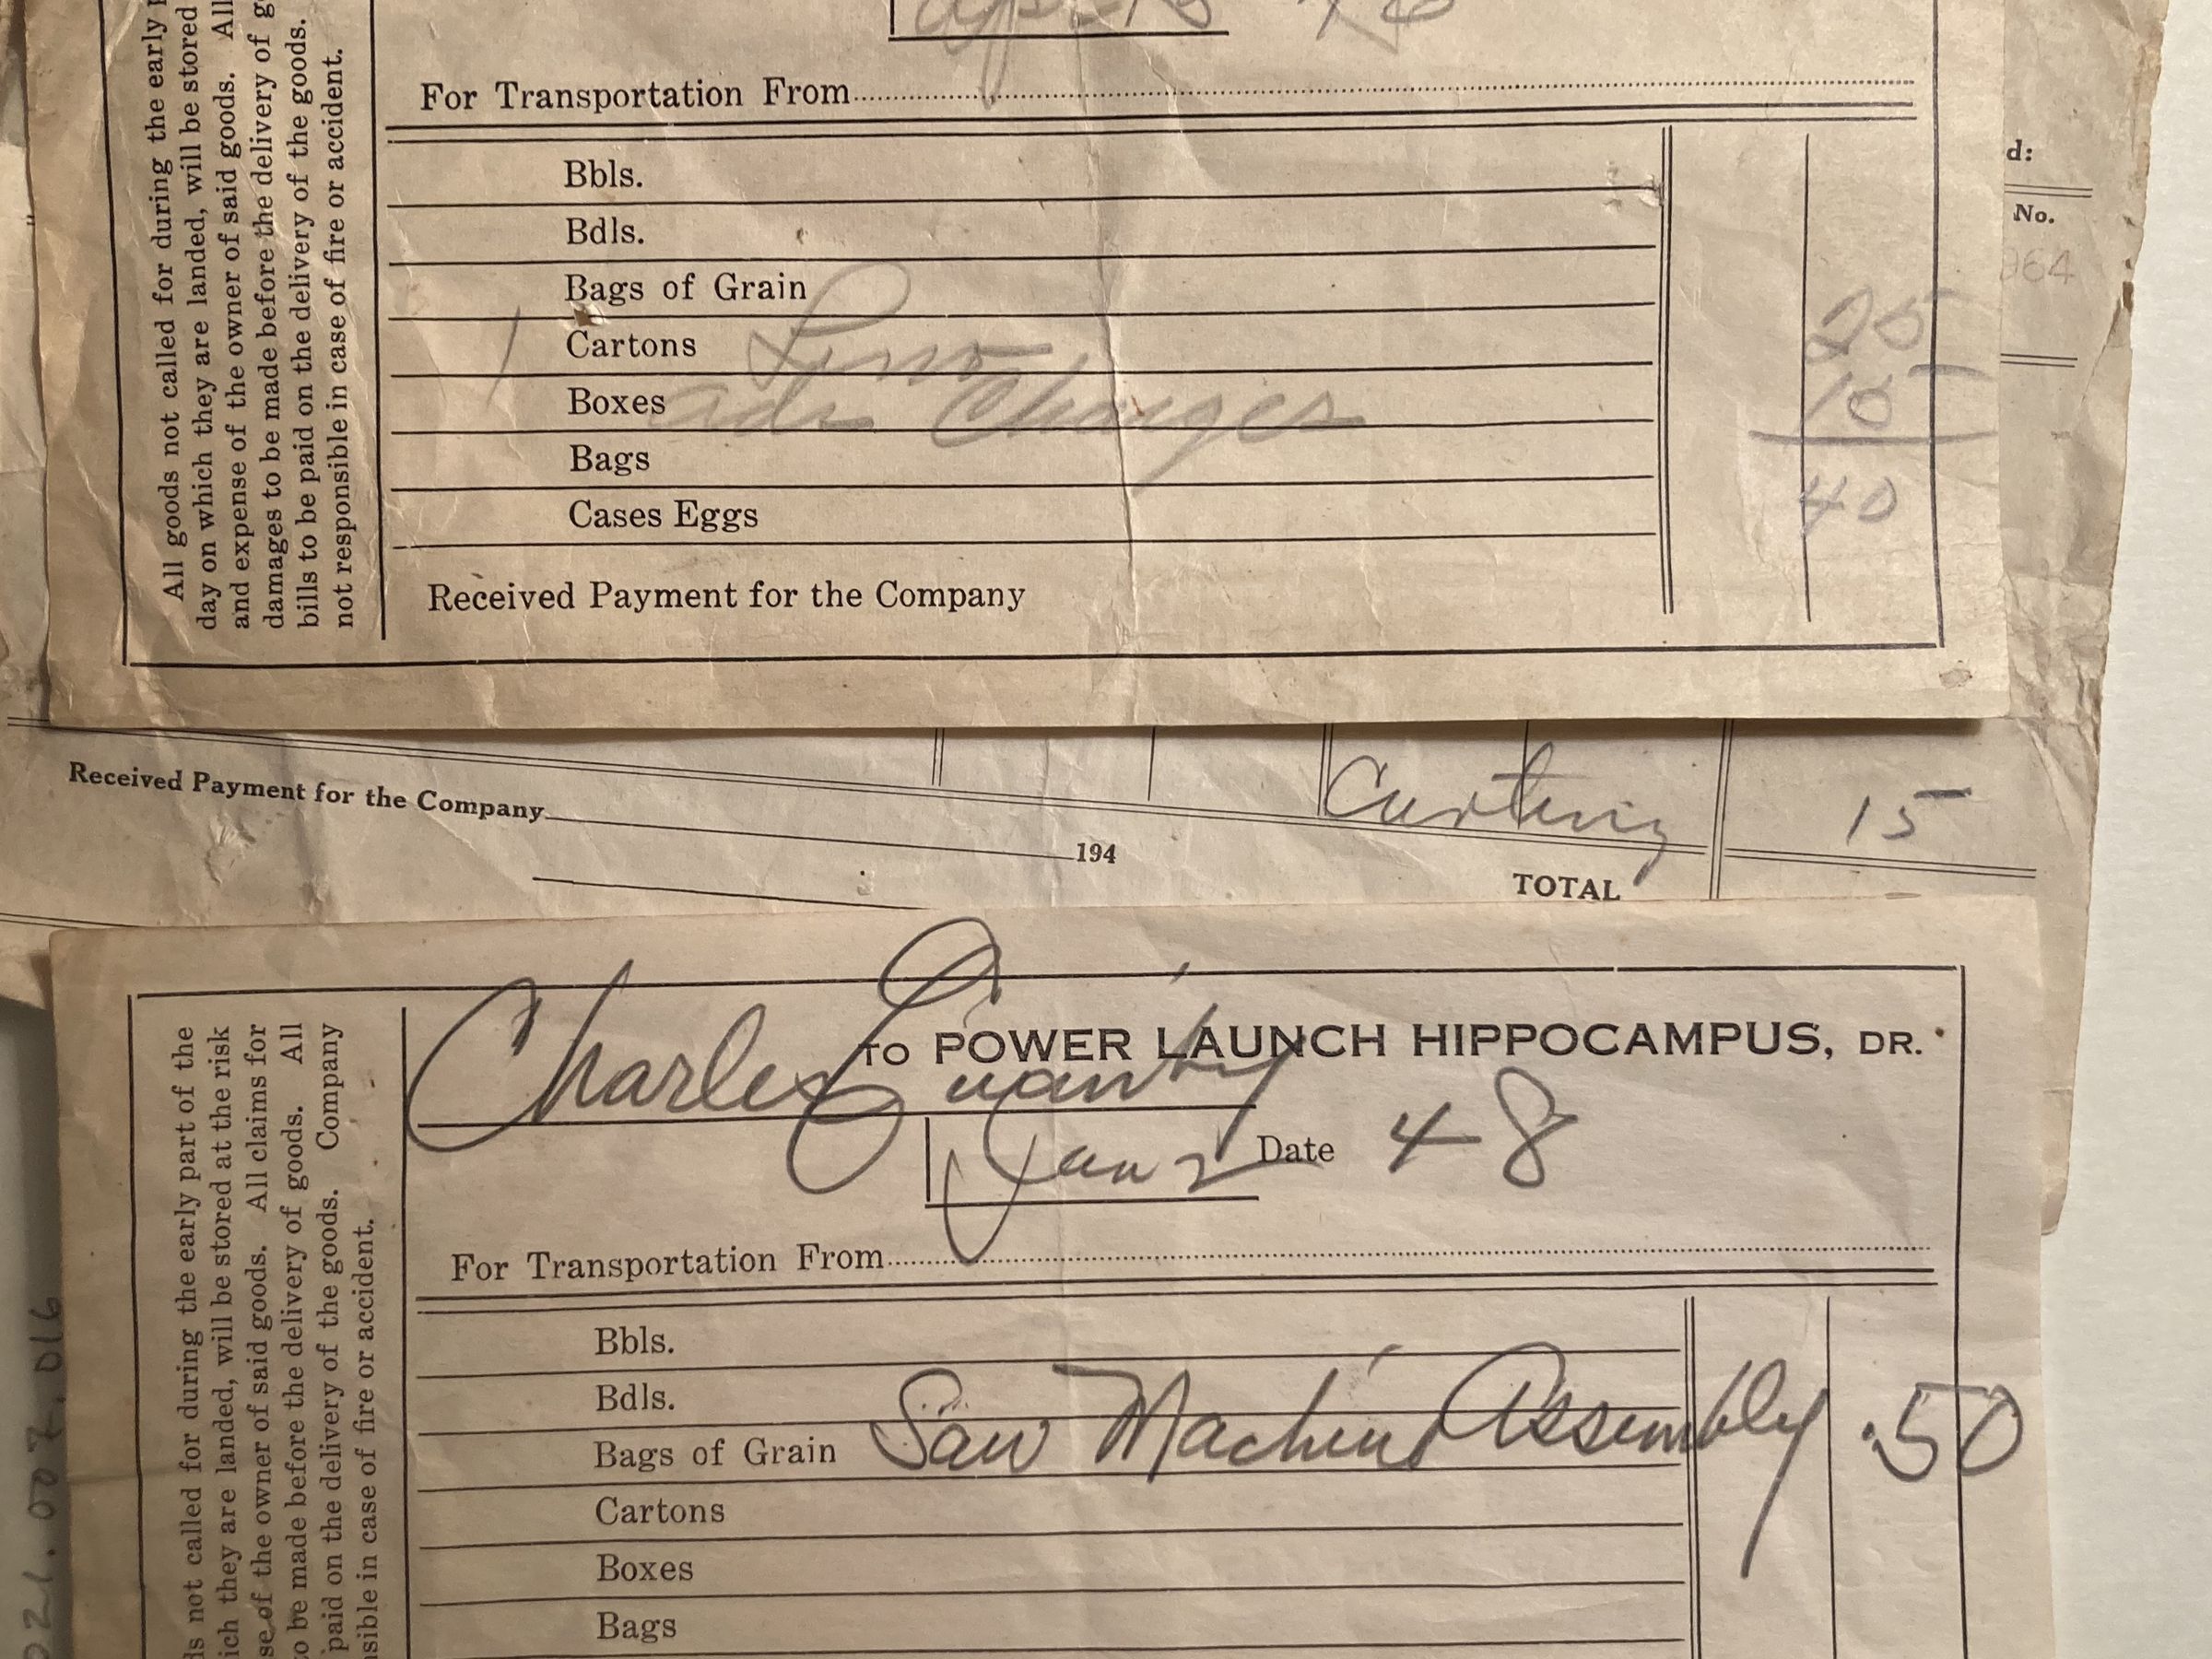 All goods not called for during the early
day on which they are landed, will be stored
and expense of the owner of said goods. All
damages to be made before the delivery of
bills to be paid on the delivery of the goods.
not responsible in case of fire or accident.
For Transportation From
Bbls.
Bdls.
Bags of Grain
1 Cartons Lino 25
Boxes ads Charges 15
Bags
40
Cases Eggs
Received Payment for the Company
d:
No.
964
Received Payment for the Company
194
Carting 15
TOTAL
Charles
TO POWER LAUNCH HIPPOCAMPUS, DR.
Jan 2 Date 48
For Transportation From
Bbls.
Bdls.
Bags of Grain Saw Machine Assembly .50
Cartons
Boxes
Bags
not called for during the early part of the
they are landed, will be stored at the risk
of the owner of said goods. All claims for
to be made before the delivery of goods. All
paid on the delivery of the goods. Company
in case of fire or accident.
021.007.016